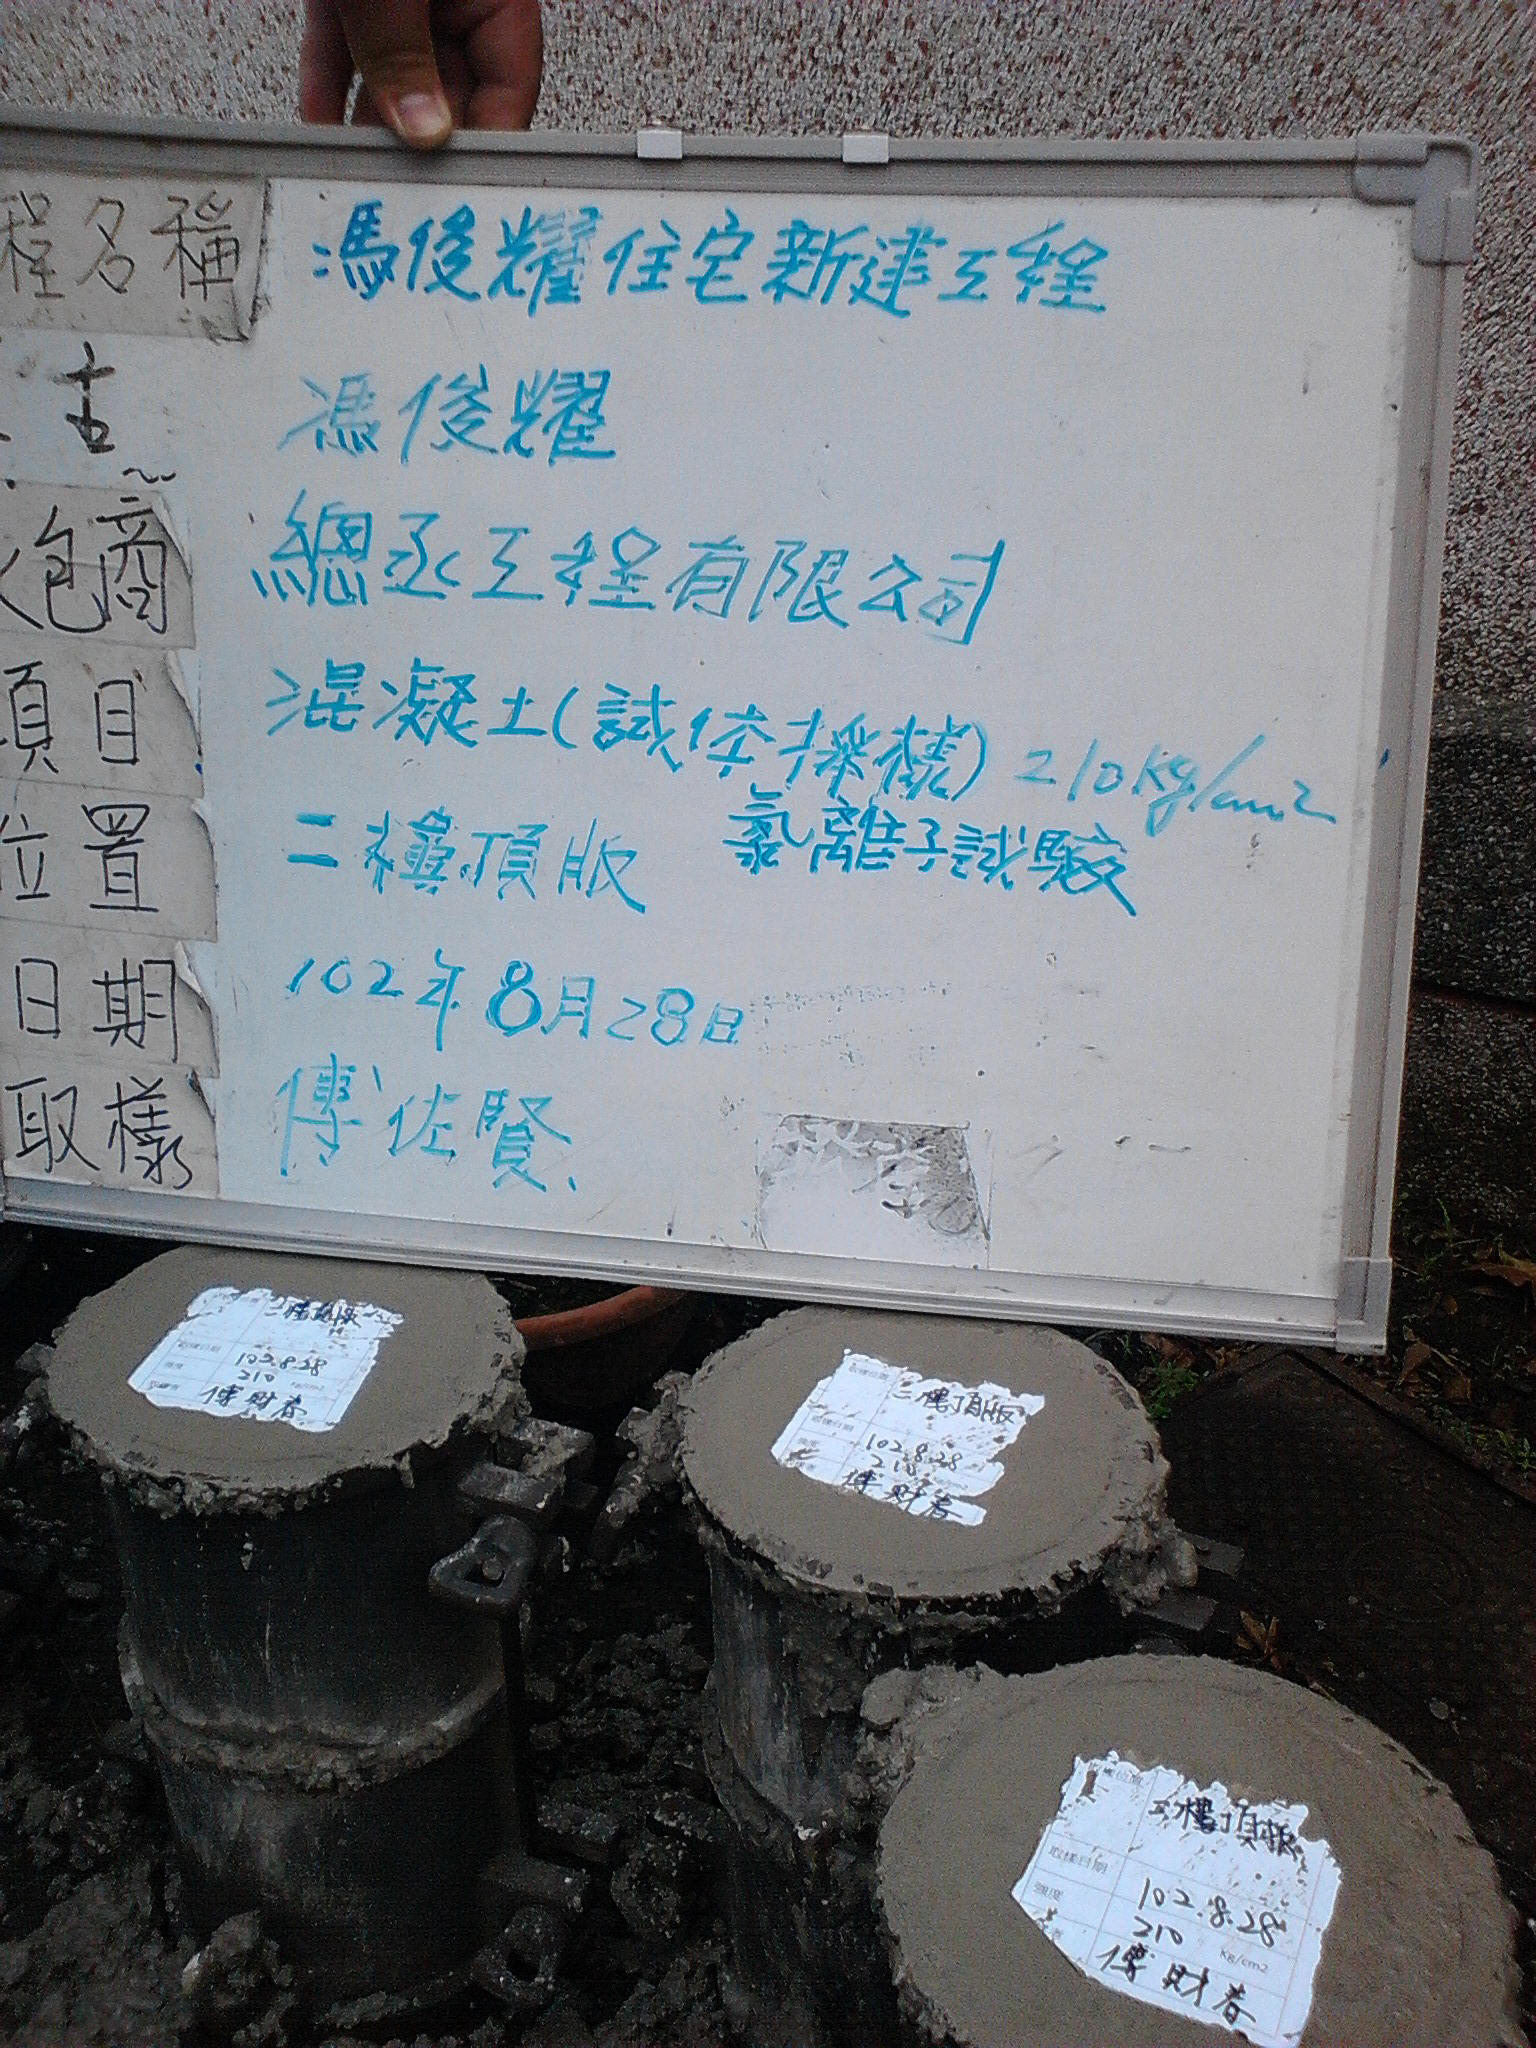 程名稱 馮俊耀住宅新建工程
主 馮俊耀
包商 總丞工程有限公司
項目 混凝土(試体採樣) 210kg/cm2
氯離子試驗
位置 二樓頂版
日期 102年8月28日
取樣 傅佐賢
二樓頂版
取樣日期 102.8.28
強度 210 Kg/cm2
傅財春
取樣位置 二樓頂版
取樣日期 102.8.28
強度 210 Kg/cm2
傅財春
位置 二樓頂版
取樣日期 102.8.28
強度 210 Kg/cm2
傅財春